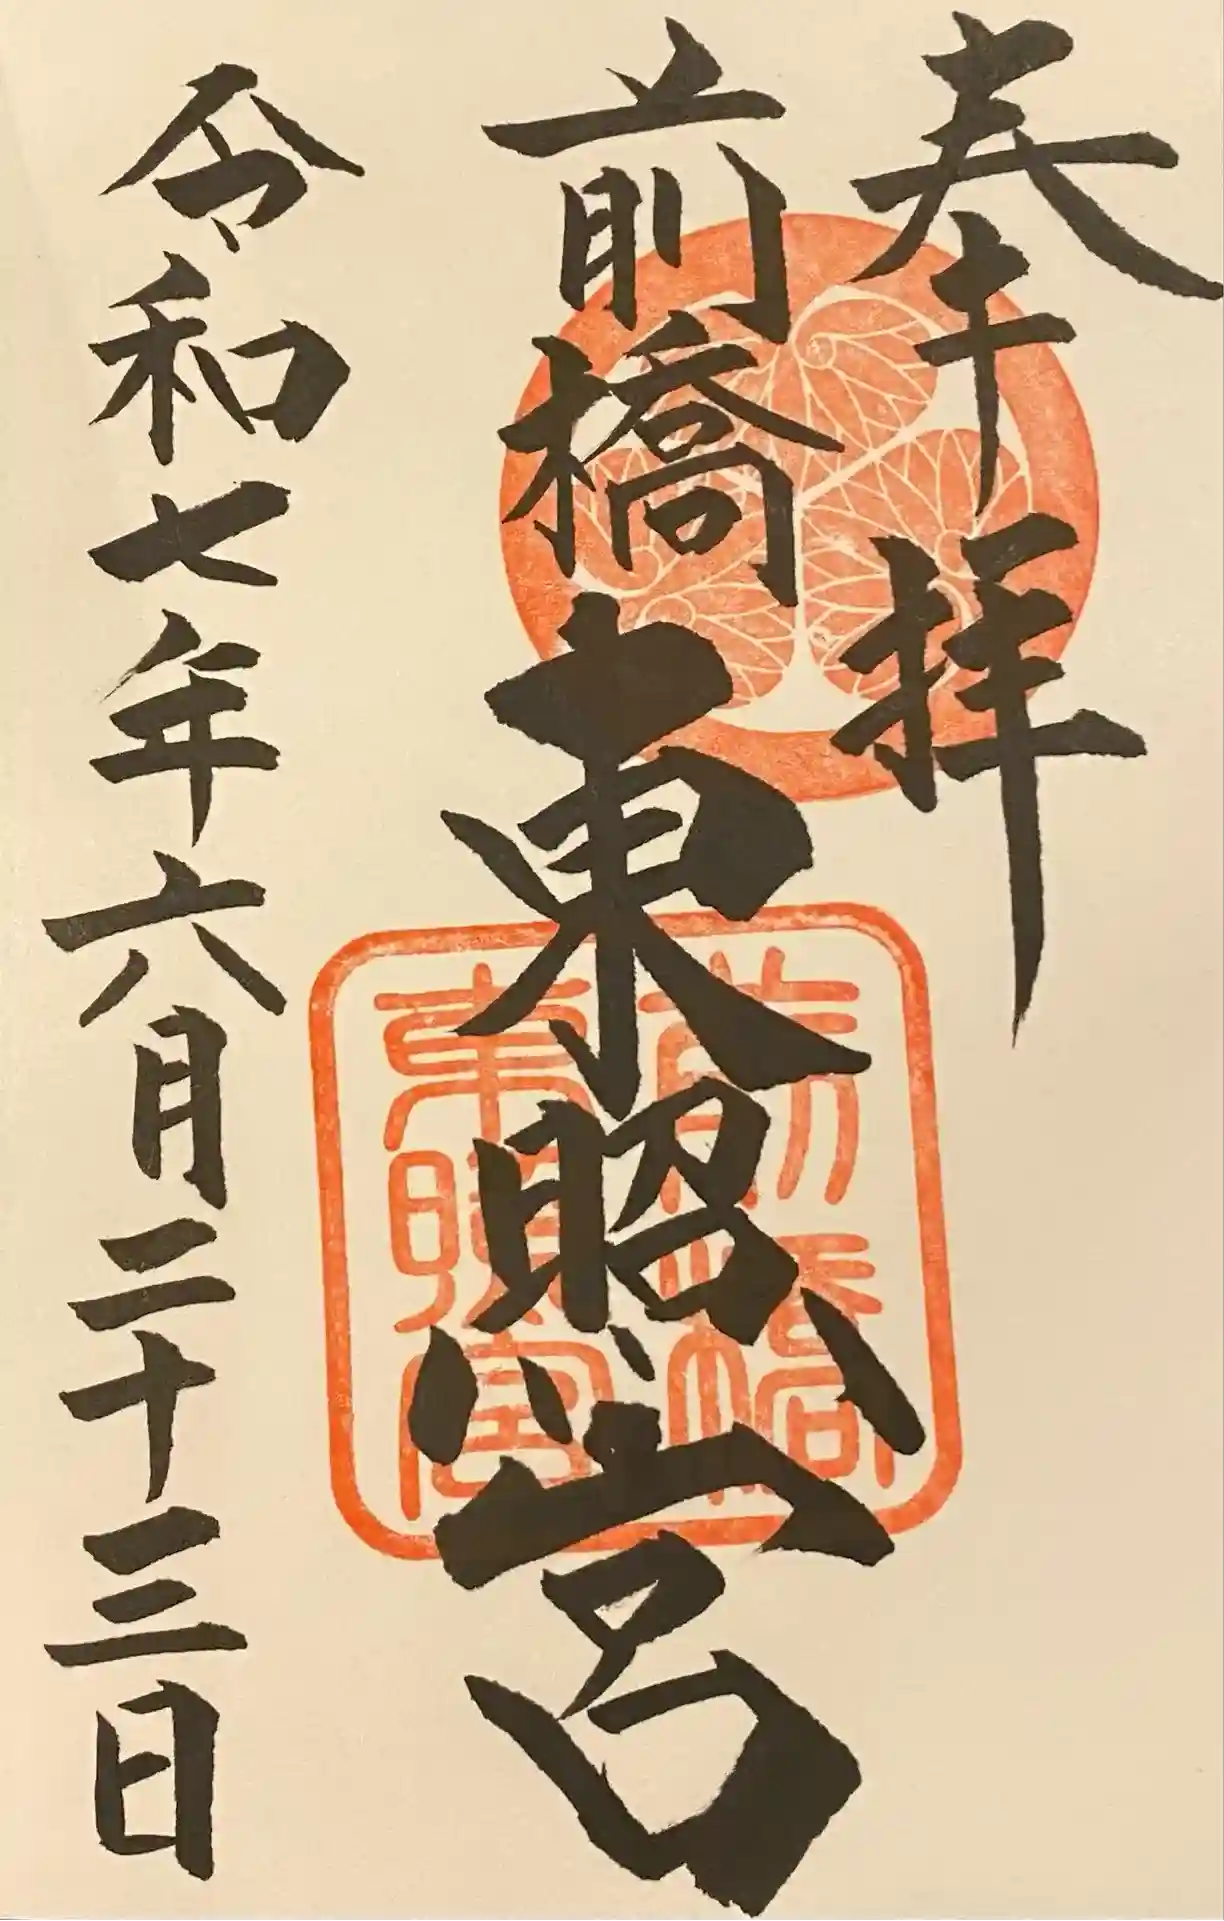 奉拝
前橋東照宮
前橋
東照宮
令和七年六月二十三日